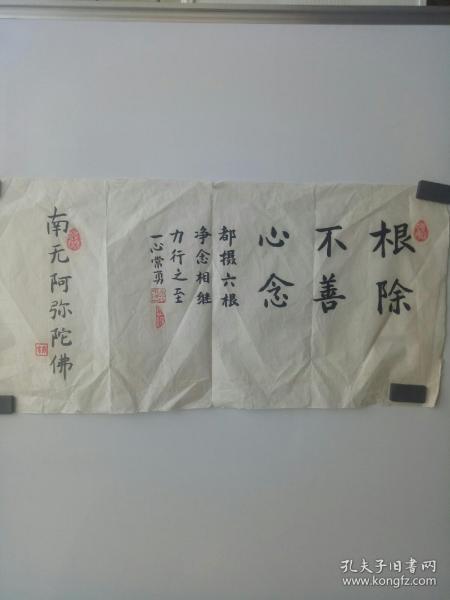 根除
不善
心念
都摄六根
净念相继
力行之至
一心常勇
南无阿弥陀佛
孔夫子旧书网
www.kongfz.com